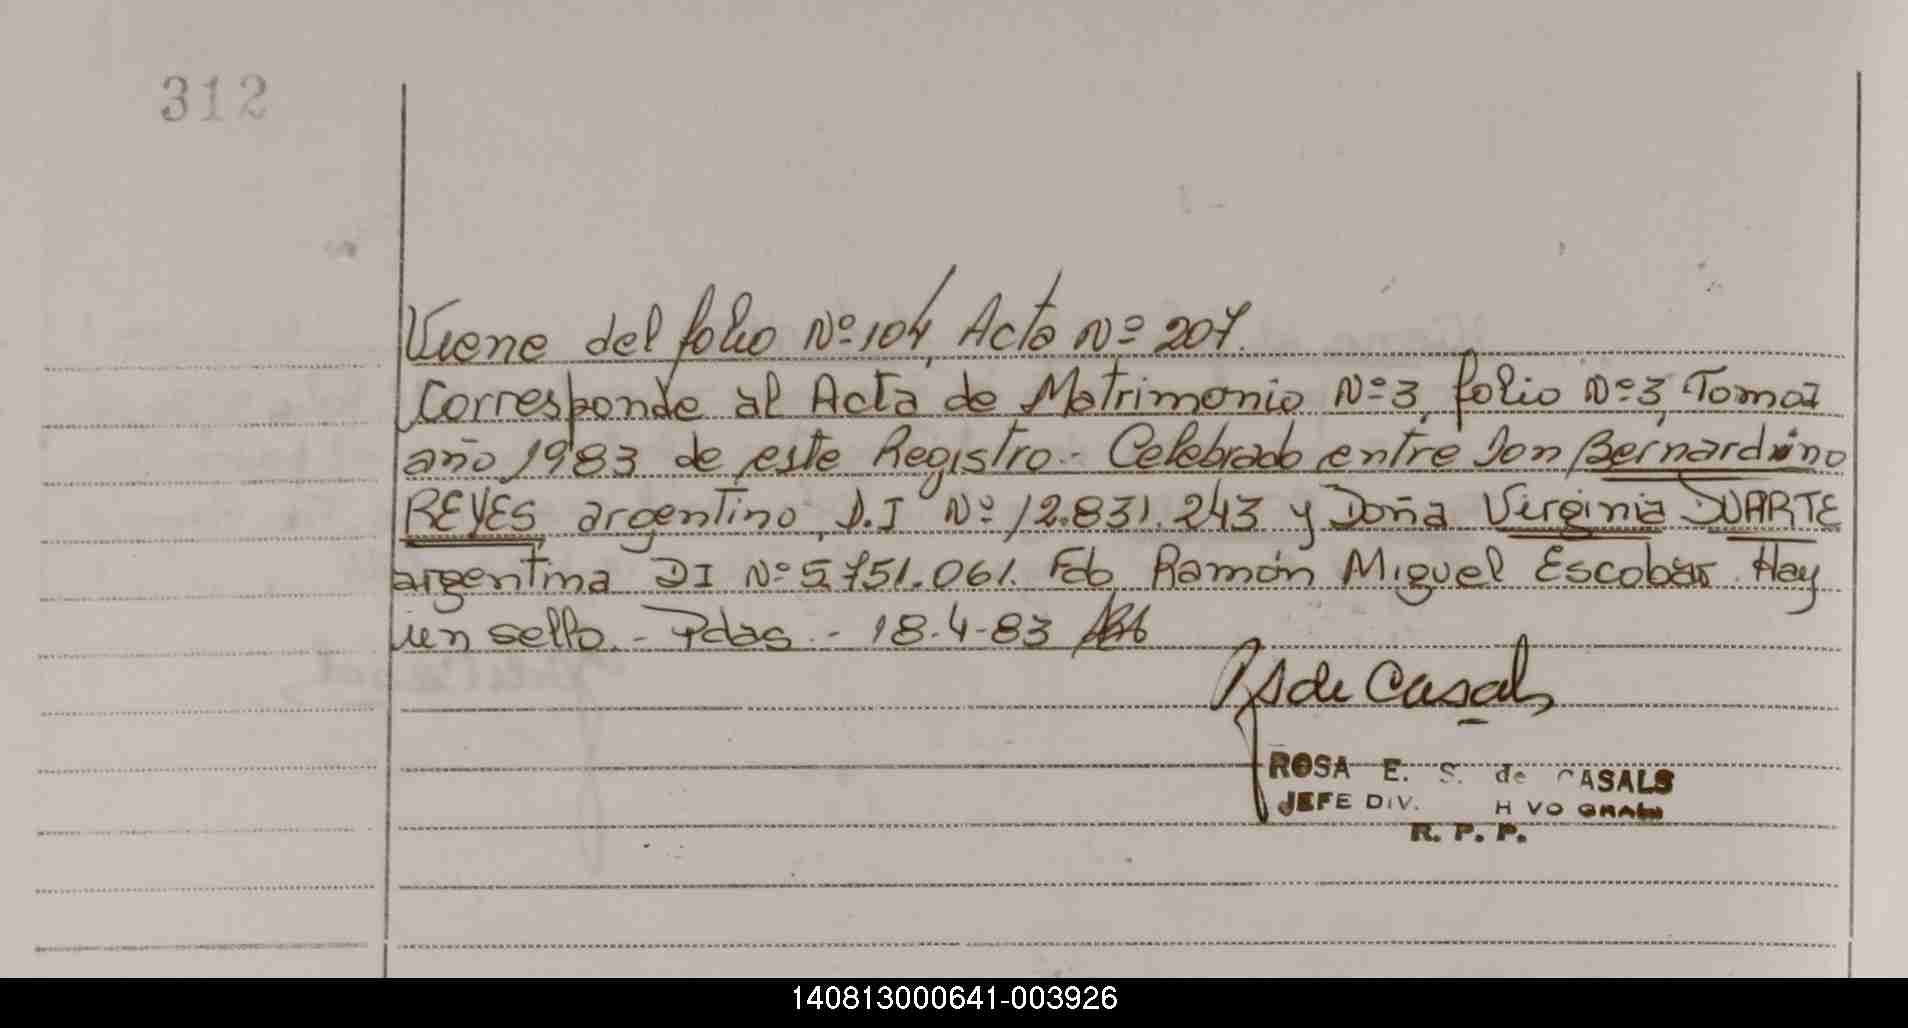 312
Viene del folio Nº 104, Acta Nº 207.
Corresponde al Acta de Matrimonio Nº 3, folio Nº 3, Tomo I
año 1983 de este Registro.- Celebrado entre Don Bernardino
REYES argentino, D.I Nº 12.831.243 y Doña Virginia DUARTE
argentina DI Nº 5.751.061. Fdo Ramón Miguel Escobar. Hay
un sello.- Pdas.- 18-4-83
de Casals
ROSA E. S. de CASALS
JEFE DIV.
R. P. P.
140813000641-003926